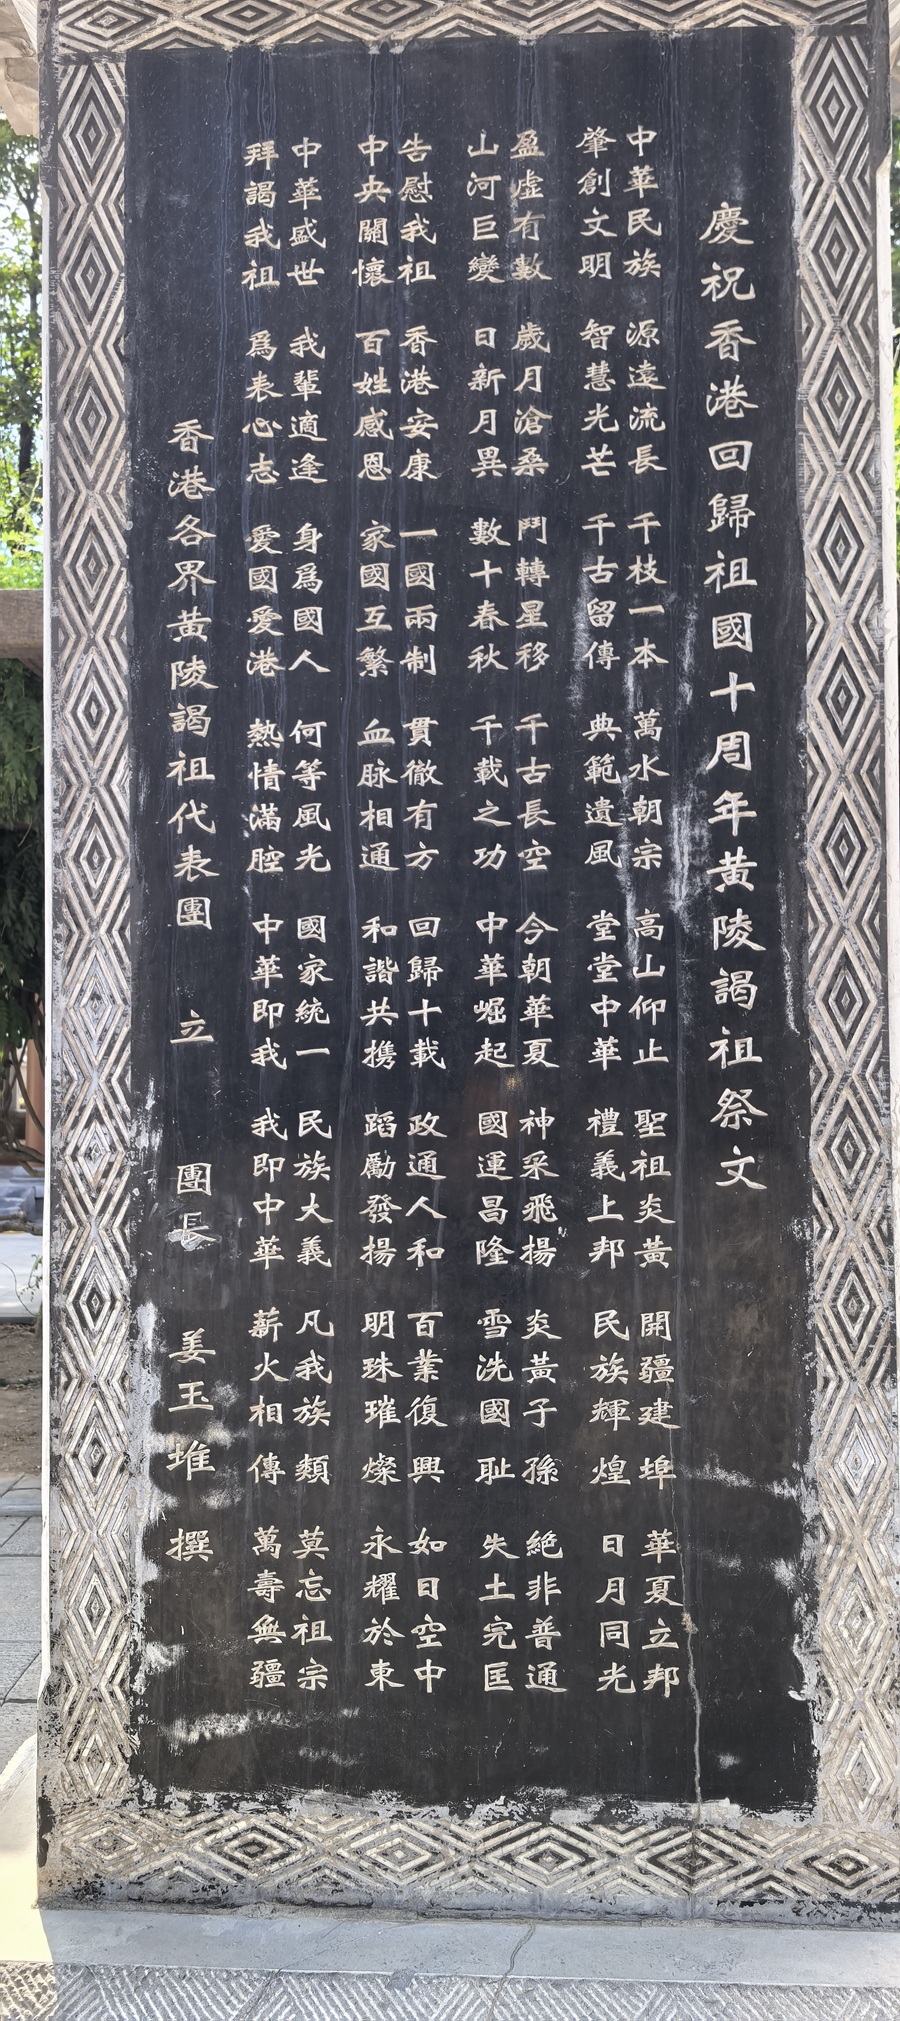 慶祝香港回歸祖國十周年黃陵謁祖祭文
中華民族 源遠流長 千枝一本 萬水朝宗 高山仰止 聖祖炎黃 開疆建埠 華夏立邦
肇創文明 智慧光芒 千古留傳 典範遺風 堂堂中華 禮義上邦 民族輝煌 日月同光
盈虛有數 歲月滄桑 鬥轉星移 千古長空 今朝華夏 神采飛揚 炎黃子孫 絕非普通
山河巨變 日新月異 數十春秋 千載之功 中華崛起 國運昌隆 雪洗國耻 失土完匡
告慰我祖 香港安康 一國兩制 貫徹有方 回歸十載 政通人和 百業復興 如日空中
中央關懷 百姓感恩 家國互繁 血脉相通 和諧共携 蹈勵發揚 明珠璀燦 永耀於東
中華盛世 我輩適逢 身爲國人 何等風光 國家統一 民族大義 凡我族類 莫忘祖宗
拜謁我祖 爲表心志 愛國愛港 熱情滿腔 中華即我 我即中華 薪火相傳 萬壽無疆
香港各界黃陵謁祖代表團 立 團長 姜玉堆 撰